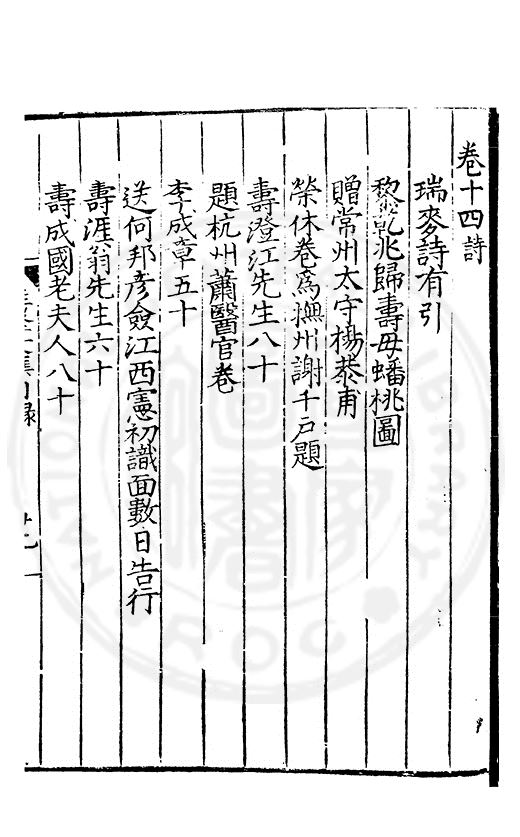 卷十四詩
瑞麥詩有引
黎乾兆歸壽母蟠桃圖
贈常州太守楊恭甫
榮休卷爲撫州謝千戶題
壽澄江先生八十
題杭州蕭醫官卷
李成章五十
送何邦彥僉江西憲初識面數日告行
壽涯翁先生六十
壽成國老夫人八十